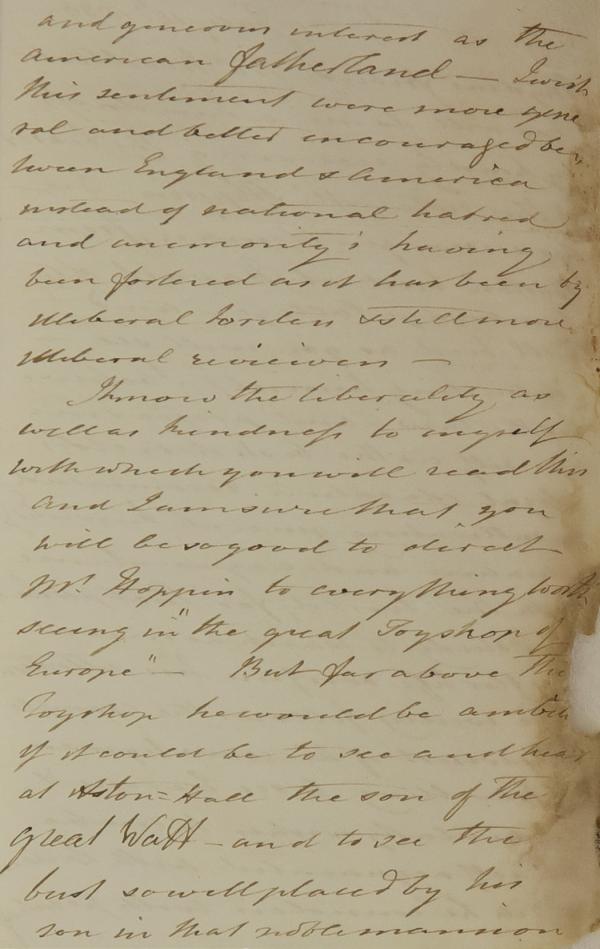 and generous interest as the
american fatherland — I wish
this sentiment were more gene
ral and better encouraged be-
tween England & America
instead of national hatred
and animosity's having
been fostered as it has been by
illiberal Tories & still more
illiberal reviewers —
I know the liberality as
well as kindness to myself
with which you will read this
and I am sure that you
will be so good to direct
Mr. Hoppin to everything worth
seeing in "the great Toyshop of
Europe" — But far above the
Toyshop he would be
if it could be to see and hear
at Aston-Hall the son of the
great Watt — and to see the
bust so well placed by his
son in that noble mansion